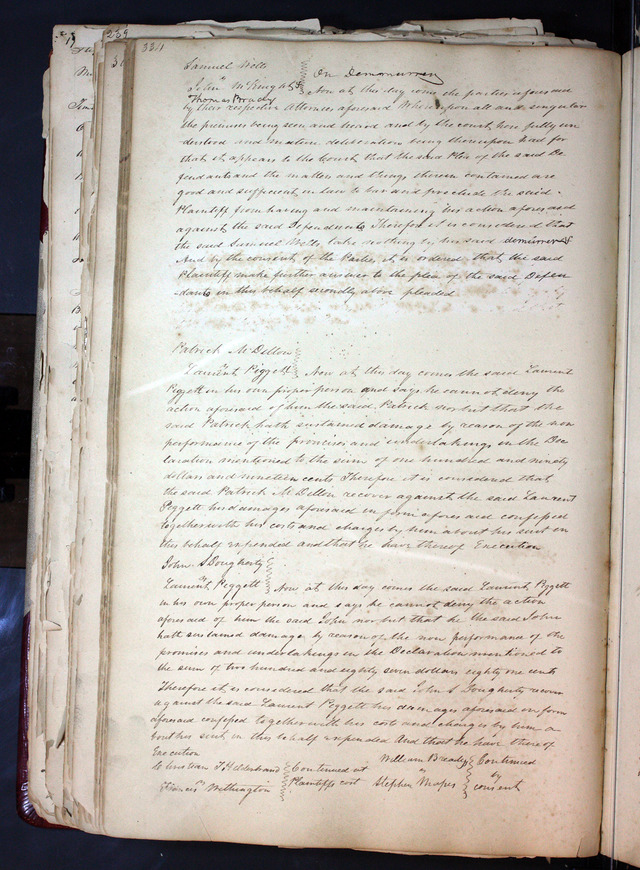 239
334
Samuel Wells
vs On Demurrer
John McKnight & Now at this day come the parties aforesaid
Thomas Brady
by their respective Attornies aforesaid Whereupon all and singular
the premises being seen and heard and by the court here fully un
derstood and mature deliberation being thereupon had for
that it appears to the Court that the said Plea of the said De
fendants and the matters and things therein contained are
good and sufficient in law to bar and preclude the said
Plaintiff from having and maintaining his action aforesaid
against the said Defendants Therefore it is considered that
the said Samuel Wells take nothing by his said demurrer &
And by the consent of the Parties it is ordered that the said
Plaintiff make further answer to the plea of the said Defen
dants in this behalf secondly above pleaded
Patrick M Dillon
vs
Laurent Peggett Now at this day comes the said Laurent
Peggett in his own proper person and says he cannot deny the
action aforesaid of him the said Patrick nor but that the
said Patrick hath sustained damage by reason of the non
performance of the promises and undertakings in the Dec
laration mentioned to the sum of one hundred and ninety
dollars and nineteen cents Therefore it is considered that
the said Patrick M Dillon recover against the said Laurent
Peggett his damages aforesaid in form aforesaid confessed
together with his costs and charges by him about his suit in
this behalf expended and that he have thereof Execution
John S Dougherty
vs
Laurent Peggett Now at this day comes the said Laurent Peggett
in his own proper person and says he cannot deny the action
aforesaid of him the said John nor but that he the said John
hath sustained damage by reason of the non performance of the
promises and undertakings in the Declaration mentioned to
the sum of two hundred and eighty seven dollars eighty one cents
Therefore it is considered that the said John S Dougherty recover
against the said Laurent Peggett his damages aforesaid in form
aforesaid confessed together with his cost and charges by him a
bout his suit in this behalf expended And that he have thereof
Execution
Christian F Hilderbrand Continued at William Brady Continued
vs Plaintiffs cost vs by
Francis Withington Stephen Mapes consent